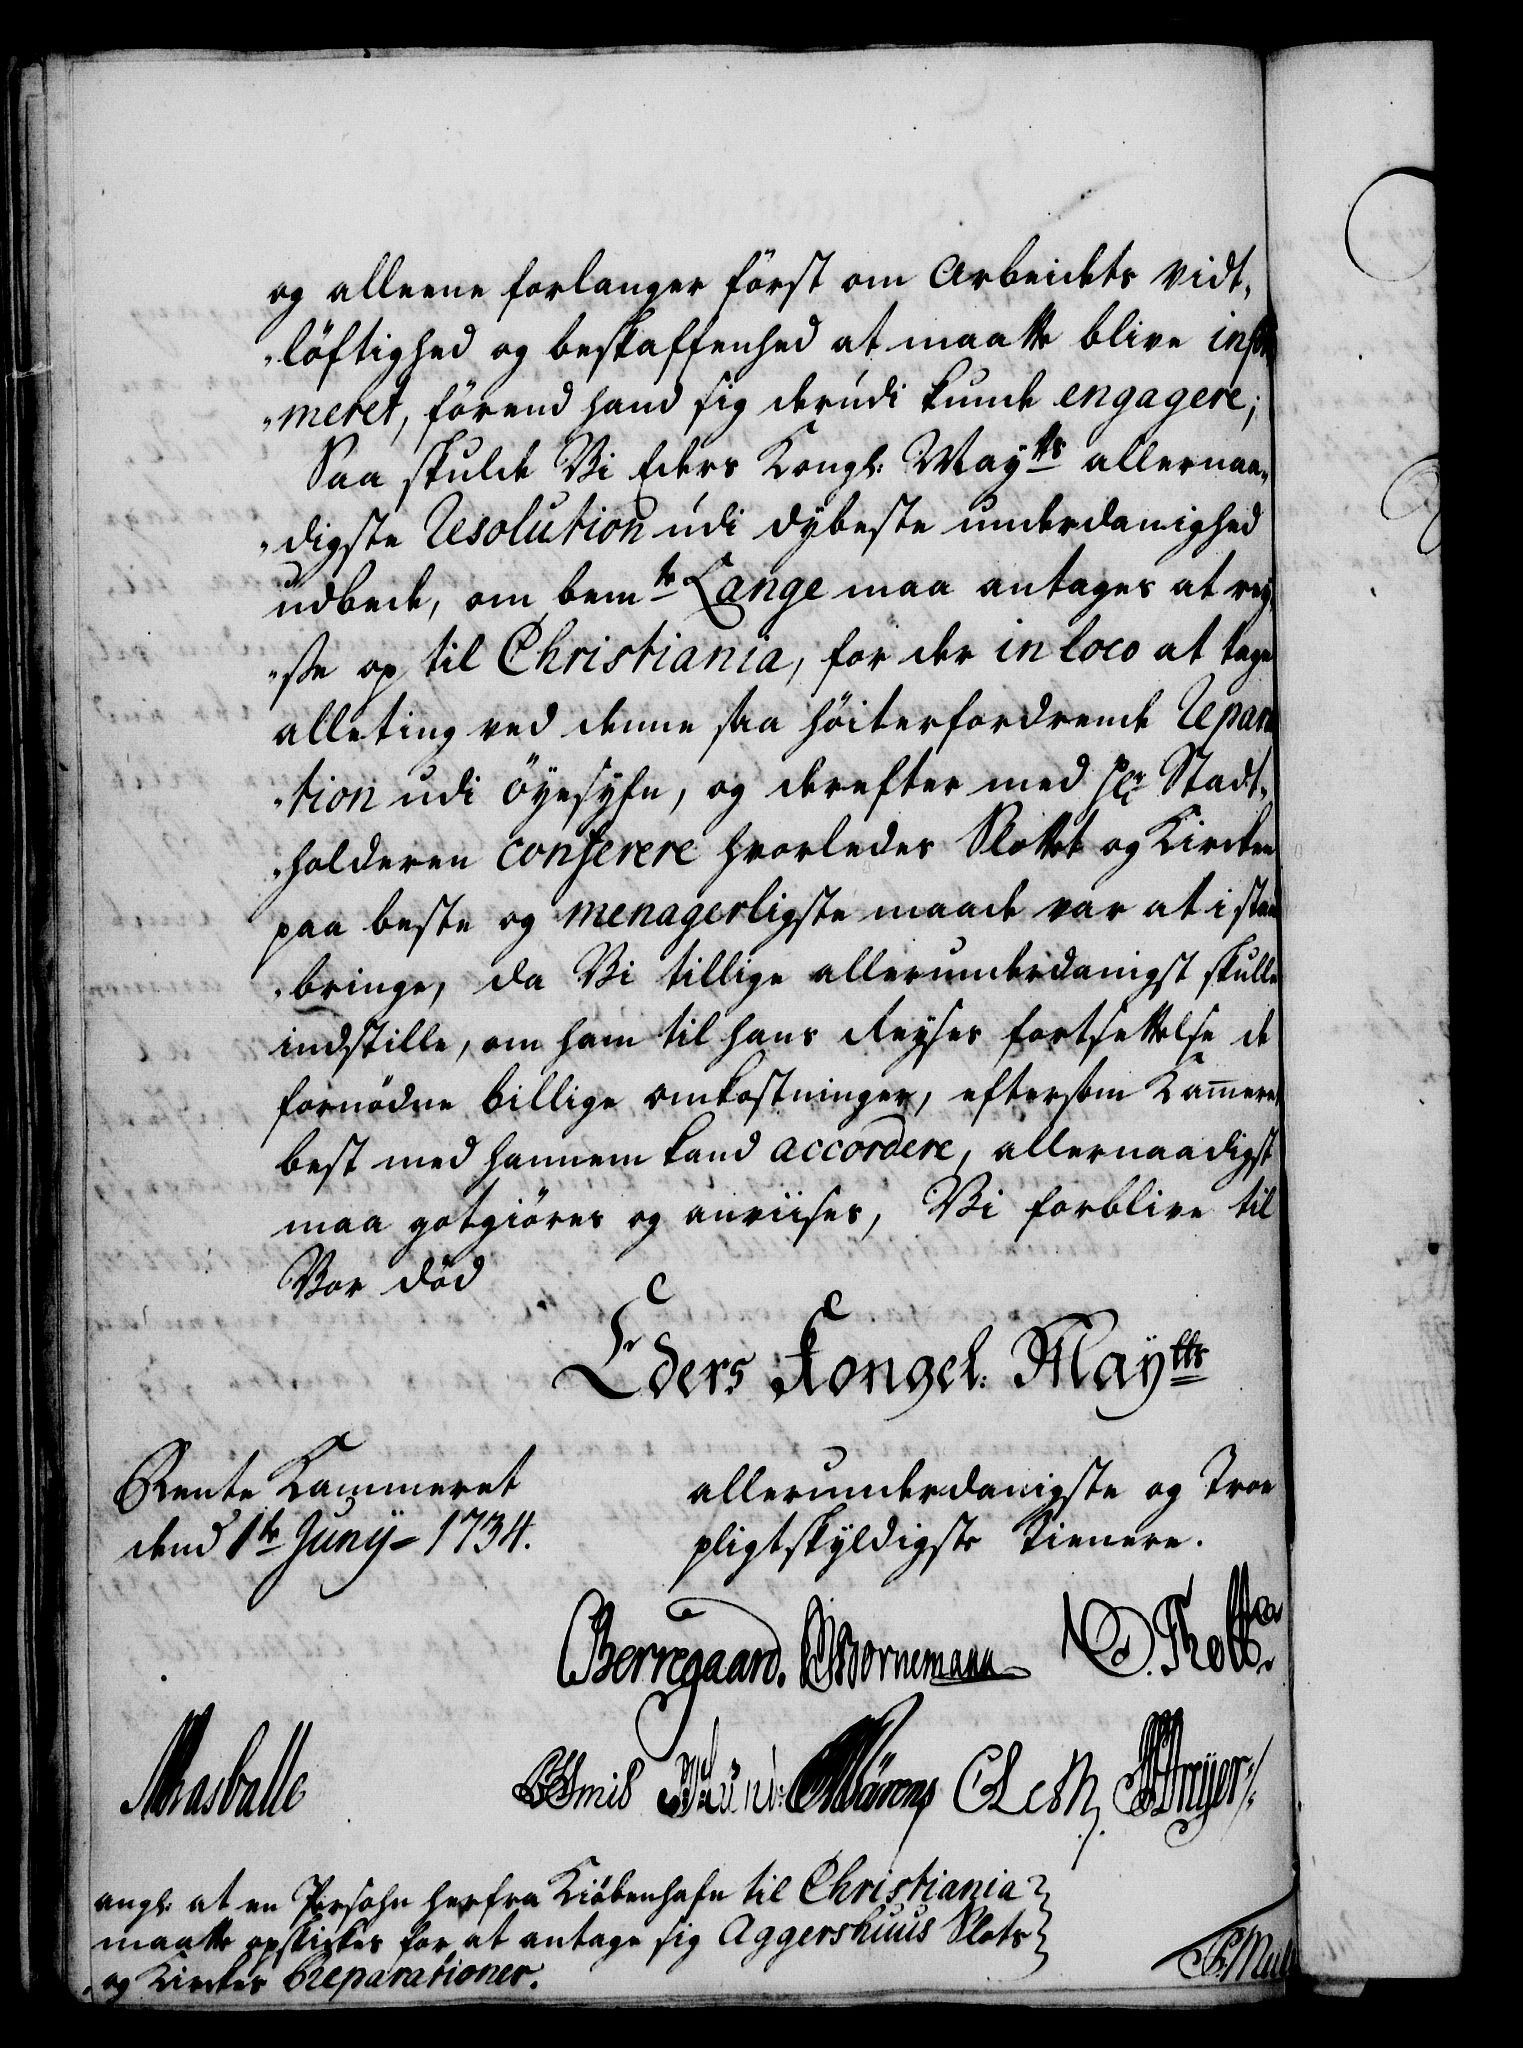 og alleene forlanger först om Arbeidets vidt„
„löftighed og beskaffenhed at maatte blive infor
„meret, förend hand sig derudi kunde engagere;
Saa skulde Vi Eders Kongl: Maytts allernaa„
„digste Resolution udi dybeste underdanighed
udbede, om bemte Lange maa antages at rey„
„se op til Christiania, for der in loco at tage
alleting ved denne saa höiterfordrende Repara
„tion udi öyesyfn, og derefter med Hr Stadt„
„holderen conferere hvorledes Slottet og Kircken
paa beste og menagerligste maade var at i stand
„bringe, da Vi tillige allerunderdanigst skulle
indstille, om ham til hans Reyses fortsettelse de
fornödne billige omkostninger, eftersom Kam̄eret
best med hannem kand accordere, allernaadigst
maa gotgiöres og anviises, Vi forblive til
Vor död
Eders Kongel: Maytts
Rente Kammeret
dend 1te Juny 1734.
allerunderdanigste og Troe
pligtskyldigste Tienere.
Berregaard. Bornemann O. Thott
Krasballe Smit Mårens C Leth Dreÿer
angl: at en Persohn herfra Kiöbenhafn til Christiania
maatte opskickes for at antage sig Aggershuus Slots
og Kirckes Reparationer.